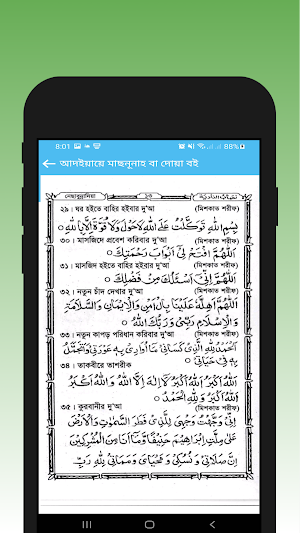 8:01 88%
← আদইয়ায়ে মাছনূনাহ বা দোয়া বই
২৯। ঘর হইতে বাহির হইবার দু'আ (মিশকাত শরীফ)
بِسْمِ اللهِ تَوَكَّلْتُ عَلَى اللهِ لَاحَوْلَ وَلَا قُوَّةَ اِلَّا بِاللهِ ○
৩০। মাসজিদে প্রবেশ করিবার দু'আ (মিশকাত শরীফ)
اَللّٰهُمَّ افْتَحْ لِىْ اَبْوَابَ رَحْمَتِكَ ○
৩১। মাসজিদ হইতে বাহির হইবার দু'আ (মিশকাত শরীফ)
اَللّٰهُمَّ اِنِّىْ اَسْئَلُكَ مِنْ فَضْلِكَ ○
৩২। নতুন চাঁদ দেখার দু'আ (মিশকাত শরীফ)
اَللّٰهُمَّ اَهِلَّهٗ عَلَيْنَا بِالْاَمْنِ وَالْاِيْمَانِ وَالسَّلَامَةِ
وَالْاِسْلَامِ رَبِّىْ وَرَبُّكَ اللهُ ○
৩৩। নতুন কাপড় পরিধান করিবার দু'আ (মিশকাত শরীফ)
اَلْحَمْدُ لِلّٰهِ الَّذِىْ كَسَانِىْ مَا اُوَارِىْ بِهٖ عَوْرَتِىْ وَاَتَجَمَّلُ
بِهٖ فِىْ حَيَاتِىْ ○
৩৪। তাকবীরে তাশরীক
اَللهُ اَكْبَرُ اَللهُ اَكْبَرُ لَا اِلٰهَ اِلَّا اللهُ وَاللهُ اَكْبَرُ
اَللهُ اَكْبَرُ وَلِلّٰهِ الْحَمْدُ ○
৩৫। কুরবানীর দু'আ (মিশকাত শরীফ)
اِنِّىْ وَجَّهْتُ وَجْهِىَ لِلَّذِىْ فَطَرَ السَّمٰوٰتِ وَالْاَرْضَ
عَلٰى مِلَّةِ اِبْرَاهِيْمَ حَنِيْفًا وَّمَا اَنَا مِنَ الْمُشْرِكِيْنَ
اِنَّ صَلَاتِىْ وَنُسُكِىْ وَمَحْيَاىَ وَمَمَاتِىْ لِلّٰهِ رَبِّ